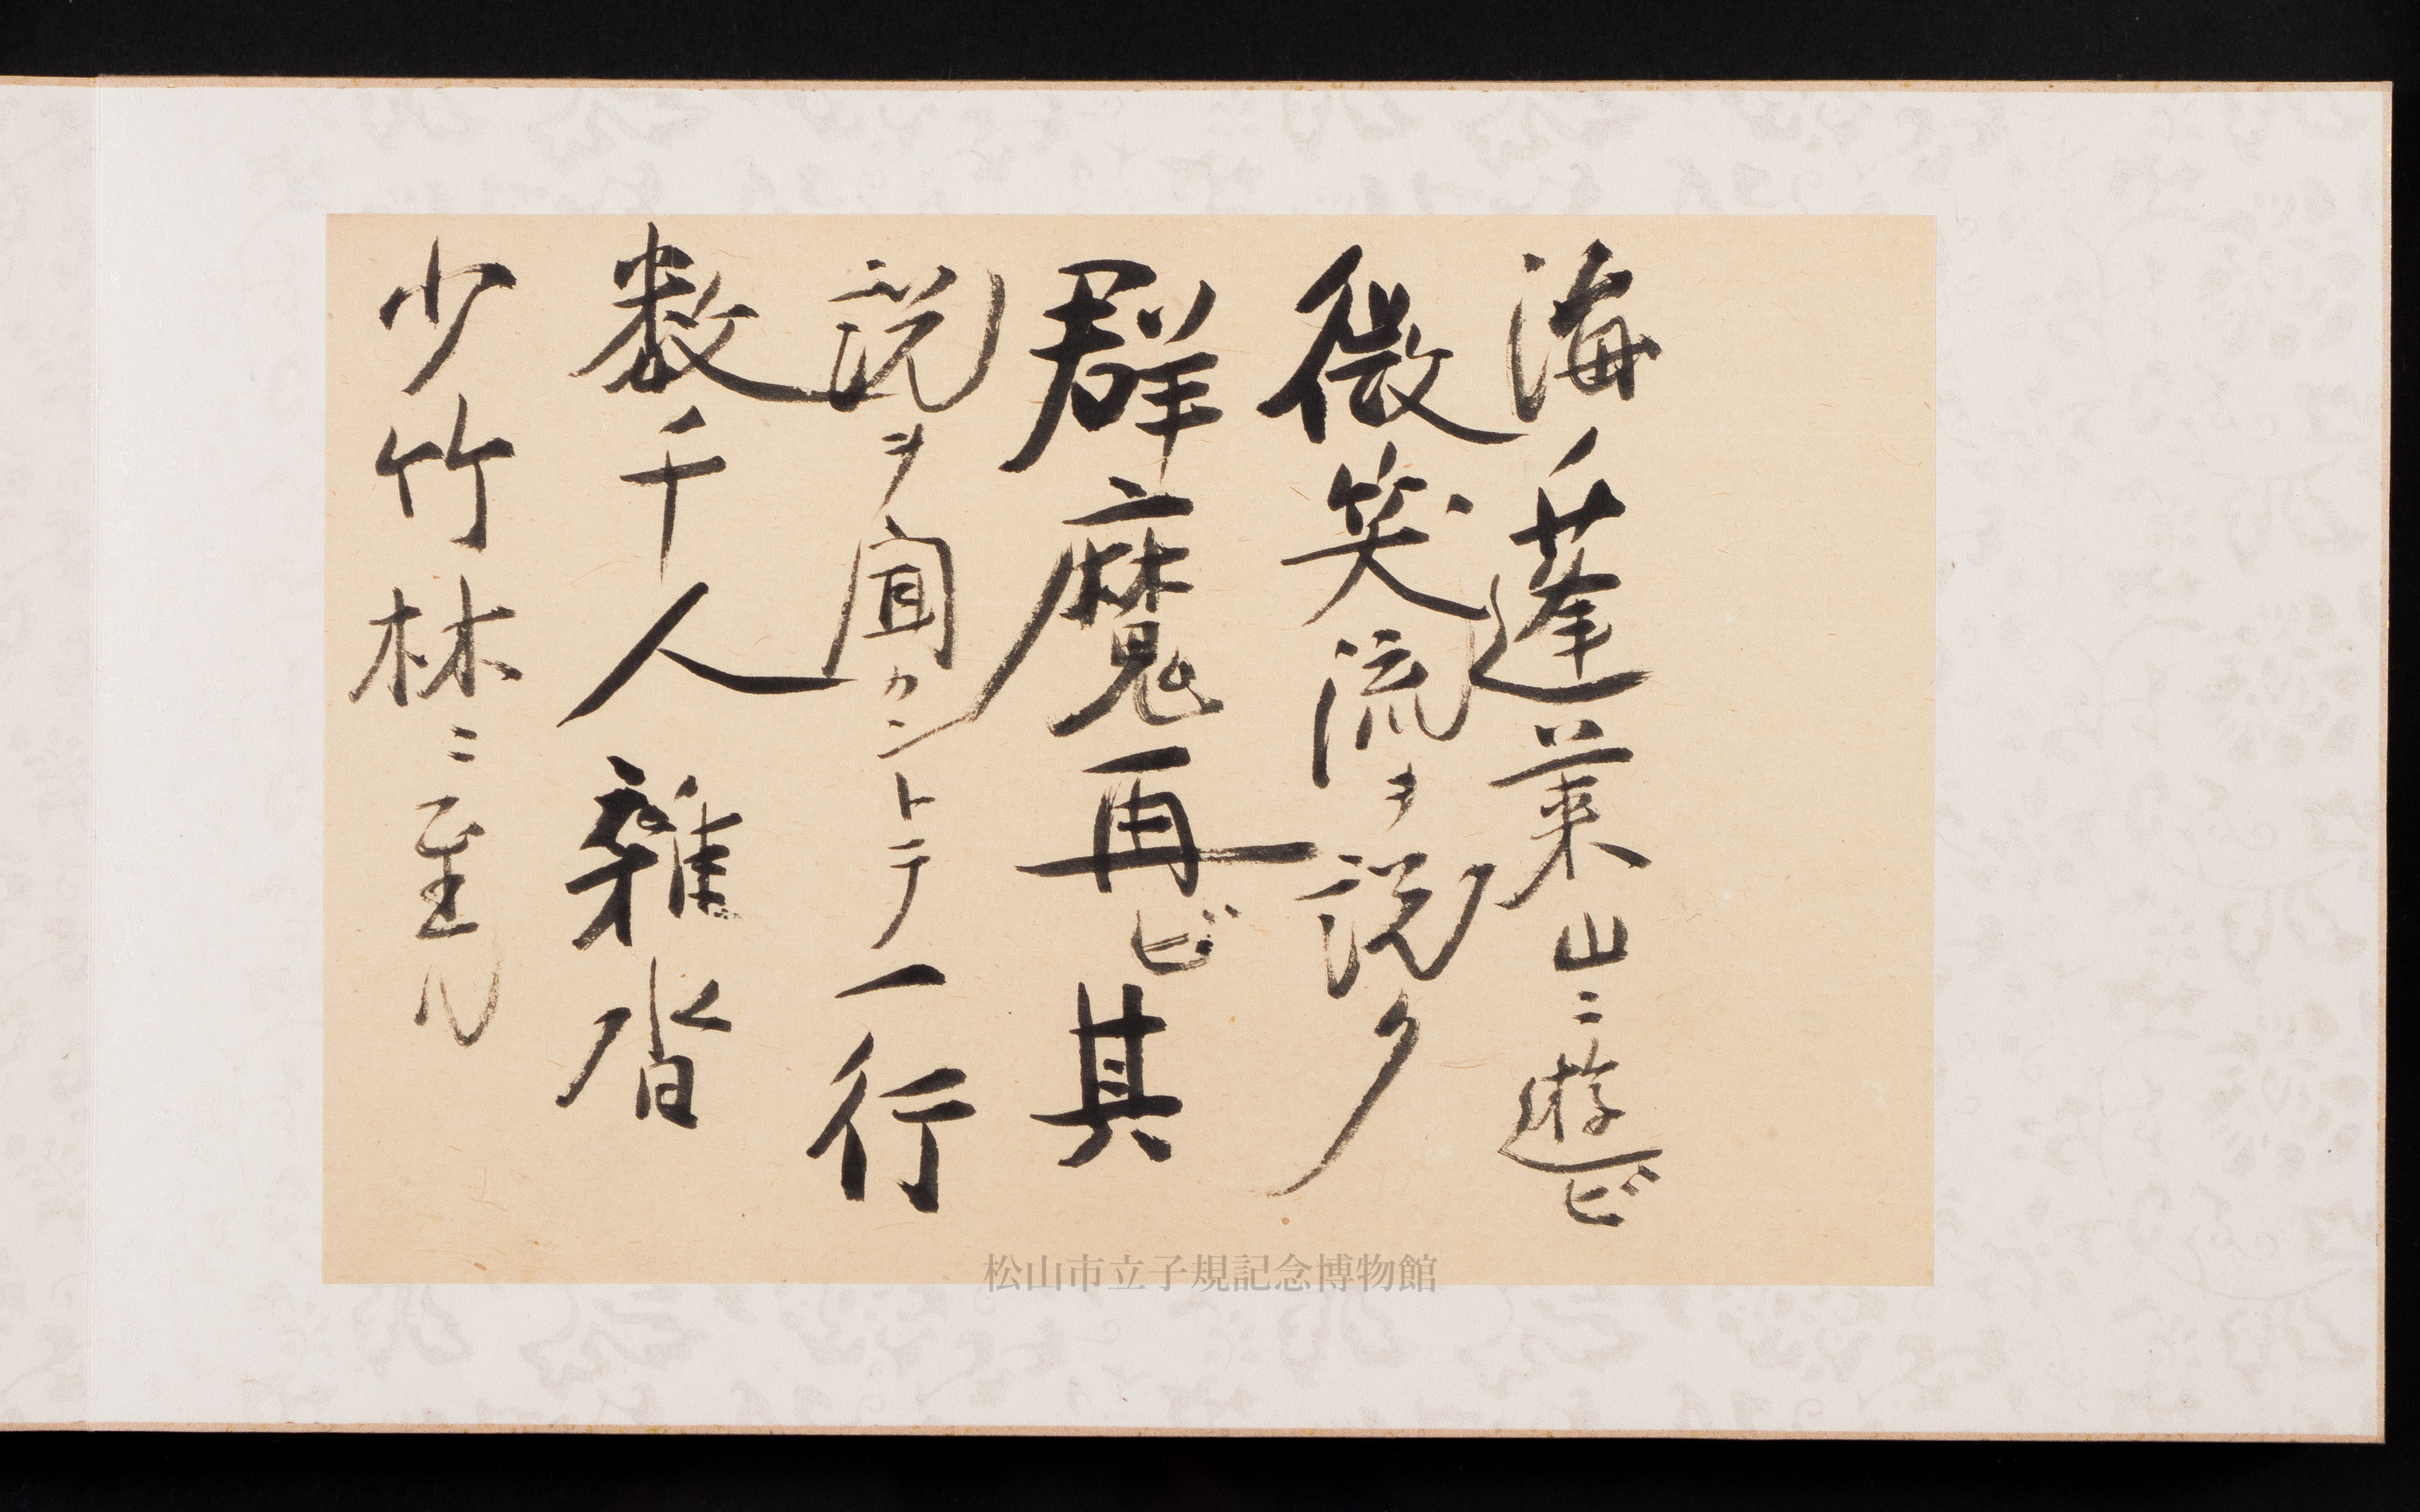 海ノ蓬莱山ニ遊ビ
微笑流ヲ説ク
群魔再ビ其
説ヲ聞カントテ一行
数千人雑沓
少竹林ニ至ル
松山市立子規記念博物館